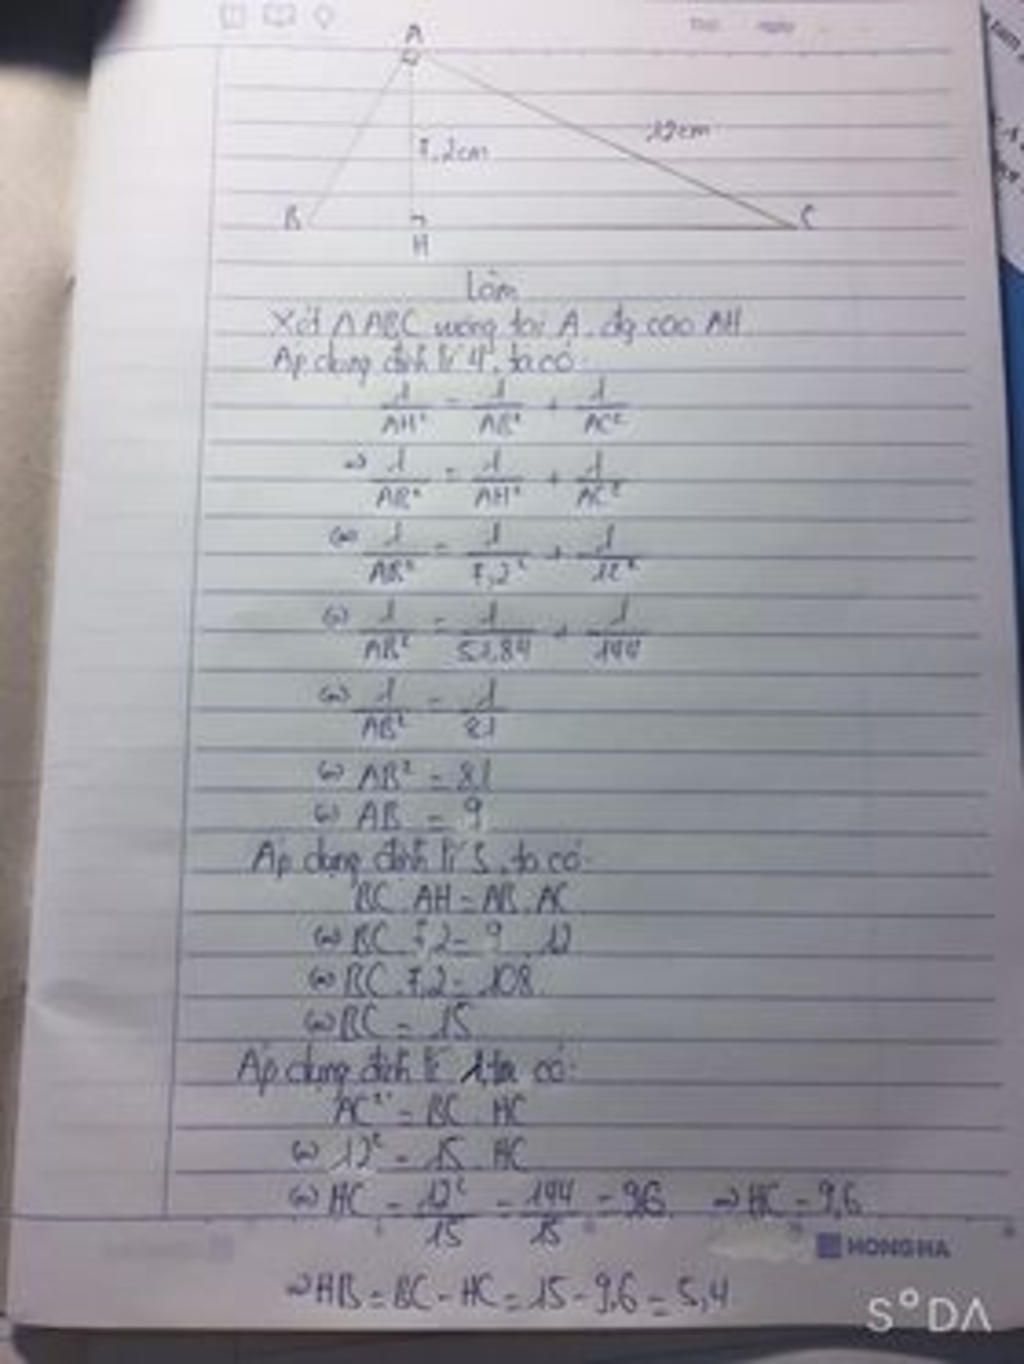 Thứ ngày
A
7,2cm
12cm
B
H
C
Làm
Xét Δ ABC vuông tại A, đg cao AH
Áp dụng định lí 4, ta có:
1/AH² = 1/AB² + 1/AC²
⇒ 1/AB² = 1/AH² + 1/AC²
⇔ 1/AB² = 1/7,2² + 1/12²
⇔ 1/AB² = 1/51,84 + 1/144
⇔ 1/AB² = 1/81
⇔ AB² = 81
⇔ AB = 9
Áp dụng định lí 3, ta có:
BC . AH = AB . AC
⇔ BC . 7,2 = 9 . 12
⇔ BC . 7,2 = 108
⇔ BC = 15
Áp dụng định lí 1, ta có:
AC² = BC . HC
⇔ 12² = 15 . HC
⇔ HC = 12²/15 = 144/15 = 9,6 ⇒ HC = 9,6
HONG HA
⇒ HB = BC - HC = 15 - 9,6 = 5,4
SODA